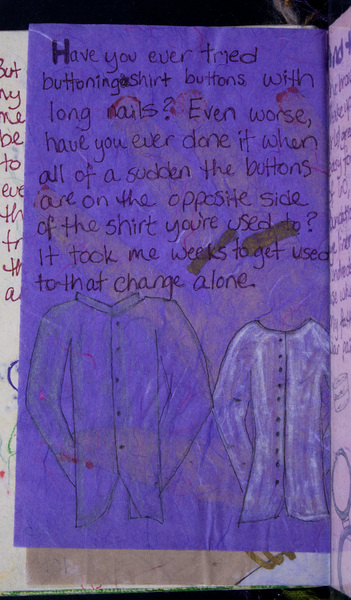 Have you ever tried
buttoning shirt buttons with
long nails? Even worse,
have you ever done it when
all of a sudden the buttons
are on the opposite side
of the shirt you're used to?
It took me weeks to get used
to that change alone.